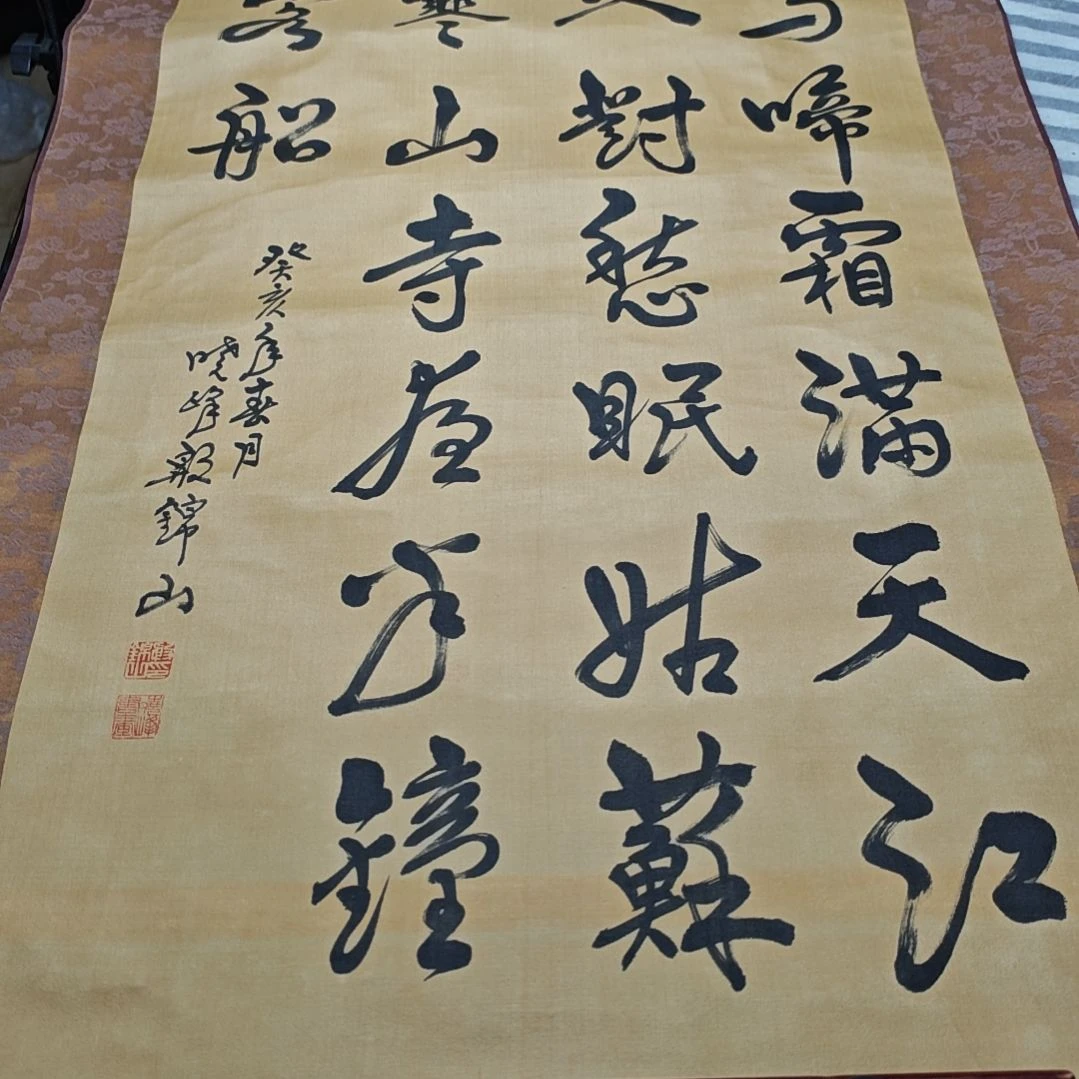 烏啼霜滿天江
火對愁眠姑蘇
寒山寺夜半鐘
客船
癸亥年春月
曉峰殷錦山